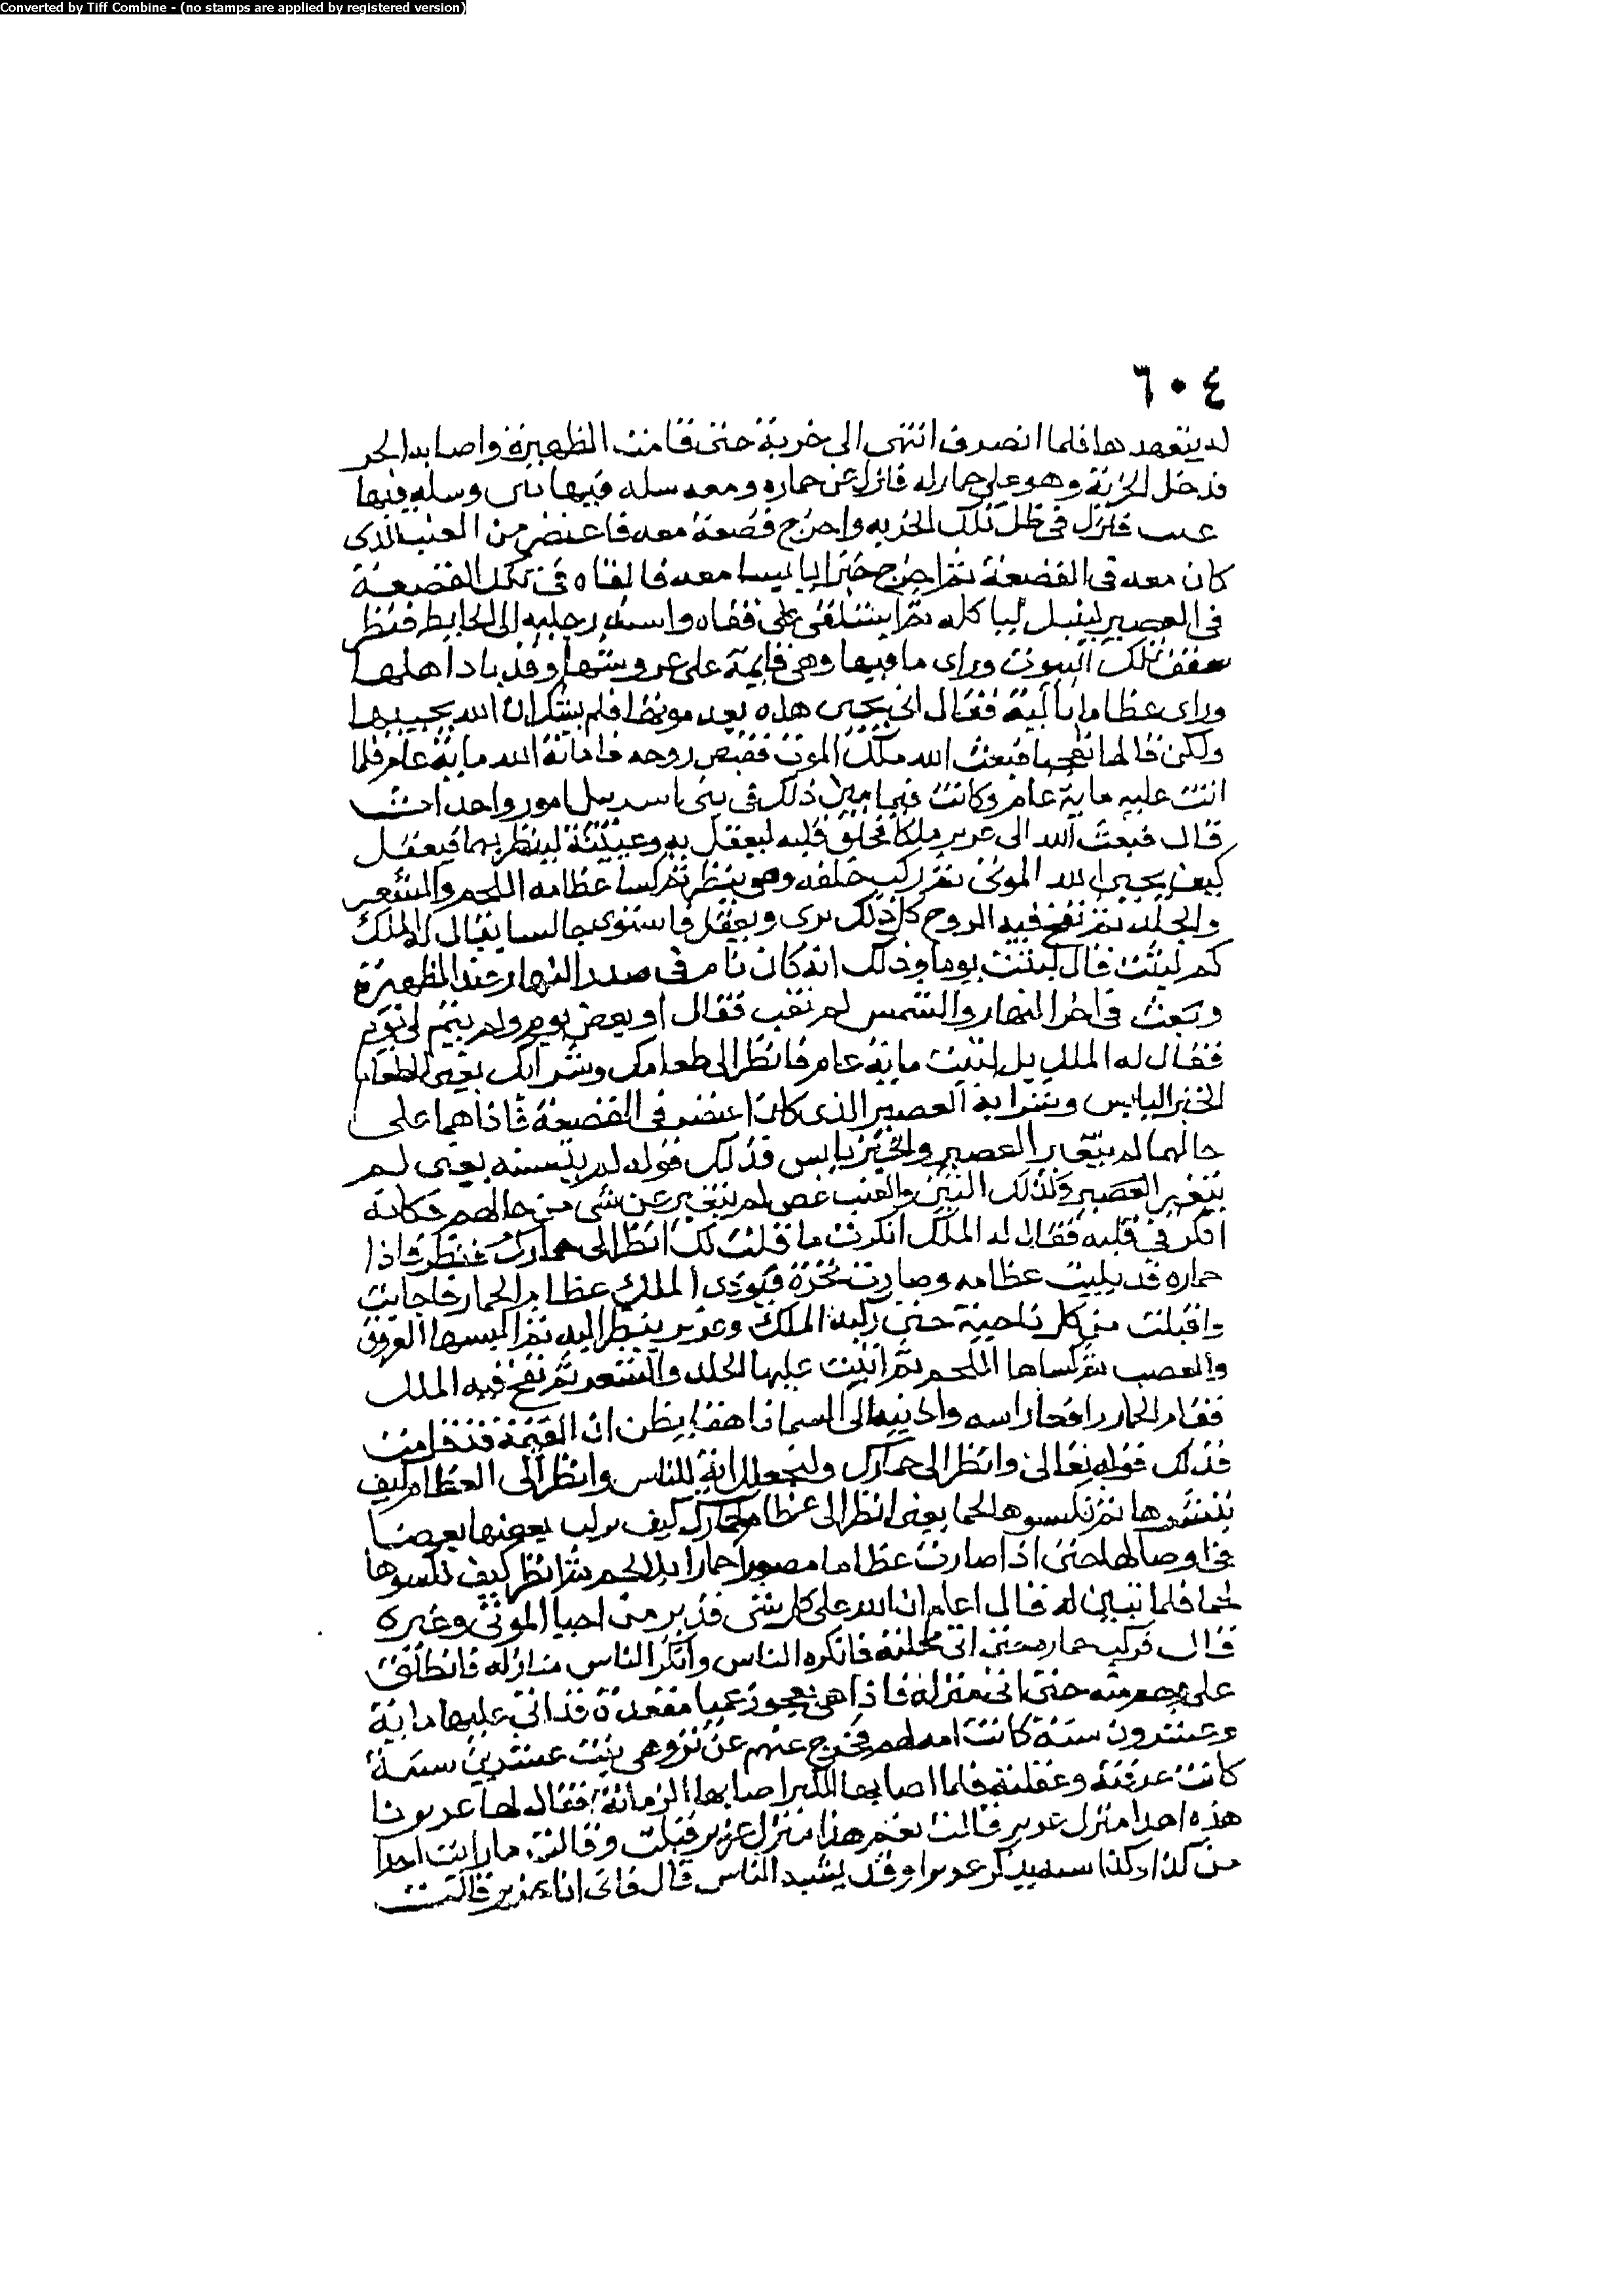 Converted by Tiff Combine - (no stamps are applied by registered version)
٦٠٤
له يتعهدها فلما انصرف انتهى الى خربة حتى قامت الظهيرة واصابه الحر
فدخل الخربة وهو على حمار له فنزل عن حماره ومعه سله فيها تين وسله فيها
عنب فنزل في ظل تلك الخربه واخرج قصعة معه فاعتصر من العنب الذى
كان معه فى القصعة ثم اخرج خبزا يابسا معه فالقاه في تلك القصعة
في العصير ليبتل لياكله ثم استلقى على قفاه واسند رجليه الى الحايط فنظر
سقف تلك البيوت وراى ما فيها وهى قايمة على عروشها وقد باد اهلها
وراى عظاما بالية فقال انى يحيى هذه بعد موتها فلم يشك ان الله يحييها
ولكن قالها تعجبا فبعث الله ملك الموت فقبض روحه فاماته الله ماية عام فلما
اتت عليه ماية عام وكانت فيما بين ذلك في بنى اسرايل امور واحداث
قال فبعث الله الى عزير ملكا فخلق قلبه ليعقل به وعينيه لينظر بهما فيعقل
كيف يحيى الله الموتى ثم ركب خلفه وهو ينظر ثم كسا عظامه اللحم والشعر
والجلد ثم نفخ فيه الروح كل ذلك يرى ويعقل فاستوى جالسا فقال له الملك
كم لبثت قال لبثت يوما وذلك انه كان نام فى صدر النهار عند الظهيرة
وبعث في اخر النهار والشمس لم تغب فقال او بعض يوم ولم يتم لى يوم
فقال له الملك بل لبثت ماية عام فانظر الى طعامك وشرابك يعنى الطعام
الخبز اليابس وشرابه العصير الذى كان اعتصر فى القصعة فاذا هما على
حالهما لم يتغير العصير والخبز يابس فذلك قوله لم يتسنه يعنى لم
يتغير العصير وكذلك التين والعنب غض لم يتغير عن شى من حالهم فكانه
انكر في قلبه فقال له الملك انكرت ما قلت لك انظر الى حمارك فنظر فاذا
حماره قد بليت عظامه وصارت نخرة فنودى الملك عظام الحمار فاجابت
واقبلت من كل ناحية حتى ركبه الملك وعزير ينظر اليه ثم البسها العروق
والعصب ثم كساها اللحم ثم انبت عليها الجلد والشعر ثم نفخ فيه الملك
فقام الحمار رافعا راسه واذنيه الى السما ناهقا يظن ان القيمة قد قامت
فذلك قوله تعالى وانظر الى حمارك ولنجعلك اية للناس وانظر الى العظام كيف
ننشزها ثم نكسوها لحما يعنى انظر الى عظام حمارك كيف يركب بعضها بعضا
في اوصالها حتى اذا صارت عظاما مصورا حمارا بلا لحم ثم انظر كيف نكسوها
لحما فلما تبين له قال اعلم ان الله على كل شى قدير من احيا الموتى وغيره
قال فركب حماره حتى اتى محلته فانكره الناس وانكر الناس منازله فانطلق
على حتى اتى منزله فاذا هى بعجوز عميا مقعدة قد اتى عليها ماية
وعشرون سنة كانت امه لهم فخرج عنهم عزير وهى بنت عشرين سنة
كانت عرفته وعقلته فلما اصابها الكبر اصابها الزمانة فقال لها عزير يا
هذه اهذا منزل عزير قالت نعم هذا منزل عزير فبكت وقالت ما رايت احدا
من كذا وكذا سنه يذكر عزيرا وقد نسيه الناس قال فانى انا عزير قالت